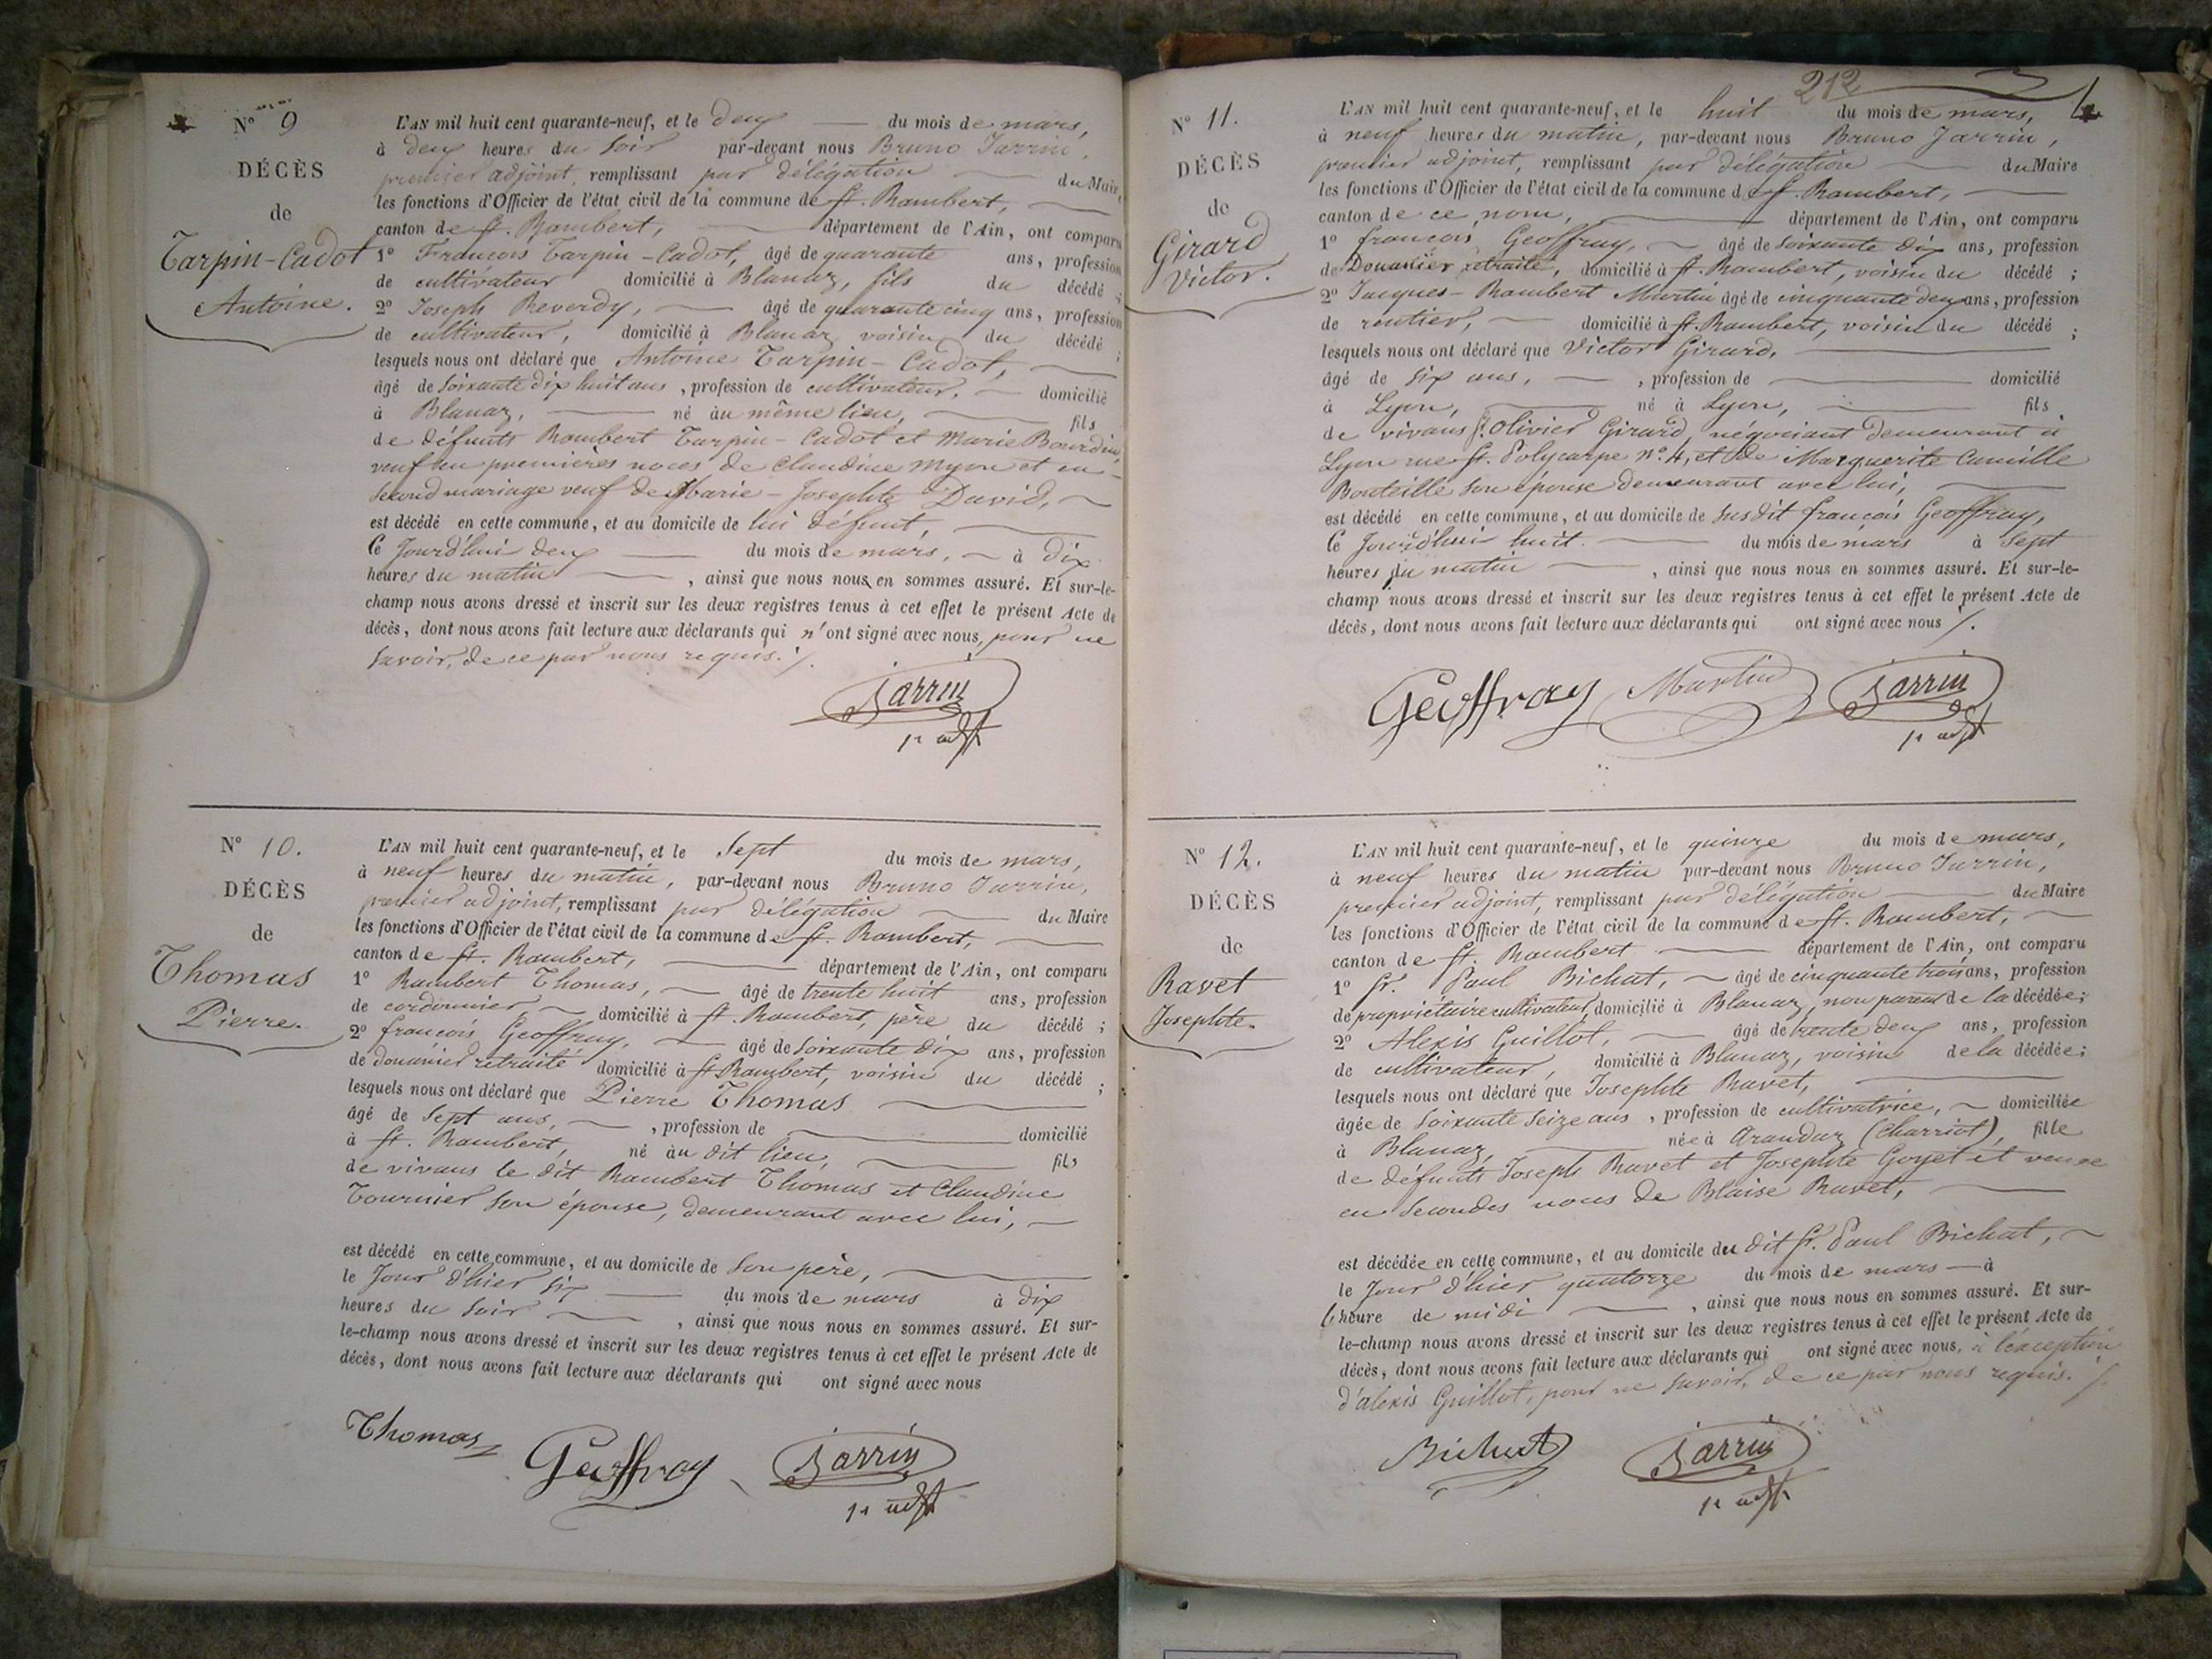 N° 9
DÉCÈS
de
Tarpin-Cadot
Antoine.
L'AN mil huit cent quarante-neuf, et le deux du mois de mars,
à deux heures du soir par-devant nous Bruno Jarrin,
premier adjoint, remplissant par délégation du Maire
les fonctions d'Officier de l'état civil de la commune de St. Rambert,
canton de St. Rambert, département de l'Ain, ont comparu
1° François Tarpin-Cadot, âgé de quarante ans, profession
de cultivateur domicilié à Blanaz, fils du décédé ;
2° Joseph Reverdy, âgé de quarante cinq ans, profession
de cultivateur, domicilié à Blanaz, voisin du décédé ;
lesquels nous ont déclaré que Antoine Tarpin-Cadot,
âgé de soixante dix huit ans, profession de cultivateur, domicilié
à Blanaz, né au même lieu, fils
de défunts Rambert Tarpin-Cadot et Marie Bourdin,
veuf en premières noces de Claudine Myon et en
second mariage veuf de Marie-Josephte David,
est décédé en cette commune, et au domicile de lui défunt,
Ce Jourd'hui deux du mois de mars, à dix
heures du matin, ainsi que nous nous en sommes assuré. Et sur-le-
champ nous avons dressé et inscrit sur les deux registres tenus à cet effet le présent Acte de
décès, dont nous avons fait lecture aux déclarants qui n'ont signé avec nous, pour ne
savoir, de ce par nous requis. /.
Jarrin
1er adjt
N° 10.
DÉCÈS
de
Thomas
Pierre.
L'AN mil huit cent quarante-neuf, et le sept du mois de mars,
à neuf heures du matin, par-devant nous Bruno Jarrin,
premier adjoint, remplissant par délégation du Maire
les fonctions d'Officier de l'état civil de la commune de St. Rambert,
canton de St. Rambert, département de l'Ain, ont comparu
1° Rambert Thomas, âgé de trente huit ans, profession
de cordonnier, domicilié à St. Rambert, père du décédé ;
2° françois Geoffray, âgé de soixante dix ans, profession
de douanier retraité domicilié à St. Rambert, voisin du décédé ;
lesquels nous ont déclaré que Pierre Thomas
âgé de sept ans, profession de domicilié
à St. Rambert, né au dit lieu, fils
de vivans le dit Rambert Thomas et Claudine
Tournier son épouse, demeurant avec lui,
est décédé en cette commune, et au domicile de son père,
le Jour d'hier six du mois de mars à dix
heures du soir, ainsi que nous nous en sommes assuré. Et sur-
le-champ nous avons dressé et inscrit sur les deux registres tenus à cet effet le présent Acte de
décès, dont nous avons fait lecture aux déclarants qui ont signé avec nous
Thomas Geoffray Jarrin
1er adjt
212
4
N° 11.
DÉCÈS
de
Girard
Victor.
L'AN mil huit cent quarante-neuf, et le huit du mois de mars,
à neuf heures du matin, par-devant nous Bruno Jarrin,
premier adjoint, remplissant par délégation du Maire
les fonctions d'Officier de l'état civil de la commune de St. Rambert,
canton de ce nom, département de l'Ain, ont comparu
1° françois Geoffray, âgé de soixante dix ans, profession
de Douanier retraité, domicilié à St. Rambert, voisin du décédé ;
2° Jacques-Rambert Martin âgé de cinquante deux ans, profession
de rentier, domicilié à St. Rambert, voisin du décédé ;
lesquels nous ont déclaré que Victor Girard,
âgé de six ans, profession de domicilié
à Lyon, né à Lyon, fils
de vivans Sr. Olivier Girard, négociant demeurant à
Lyon rue St. Polycarpe n°. 4, et de Marguerite Camille
Bouteille son épouse demeurant avec lui,
est décédé en cette commune, et au domicile de susdit françois Geoffray,
Ce Jourd'hui huit. du mois de mars à sept
heures du matin, ainsi que nous nous en sommes assuré. Et sur-le-
champ nous avons dressé et inscrit sur les deux registres tenus à cet effet le présent Acte de
décès, dont nous avons fait lecture aux déclarants qui ont signé avec nous /.
Geoffray Martin Jarrin
1er adjt
N° 12.
DÉCÈS
de
Ravet
Josephte.
L'AN mil huit cent quarante-neuf, et le quinze du mois de mars,
à neuf heures du matin par-devant nous Bruno Jarrin,
premier adjoint, remplissant par délégation du Maire
les fonctions d'Officier de l'état civil de la commune de St. Rambert,
canton de St. Rambert département de l'Ain, ont comparu
1° Sr. Paul Bichat, âgé de cinquante trois ans, profession
de propriétaire cultivateur, domicilié à Blanaz, non parent de la décédée ;
2° Alexis Guillot, âgé de trente deux ans, profession
de cultivateur, domicilié à Blanaz, voisin de la décédée ;
lesquels nous ont déclaré que Josephte Ravet,
âgée de soixante seize ans, profession de cultivatrice, domiciliée
à Blanaz, née à Arandaz (Charriot), fille
de défunts Joseph Ravet et Josephte Goyet et veuve
en secondes noces de Blaise Ravet,
est décédée en cette commune, et au domicile du dit Sr. Paul Bichat,
le Jour d'hier quatorze du mois de mars à
l'heure de midi, ainsi que nous nous en sommes assuré. Et sur-
le-champ nous avons dressé et inscrit sur les deux registres tenus à cet effet le présent Acte de
décès, dont nous avons fait lecture aux déclarants qui ont signé avec nous, à l'exception
d'alexis Guillot, pour ne savoir, de ce par nous requis. /.
Bichat Jarrin
1er adjt